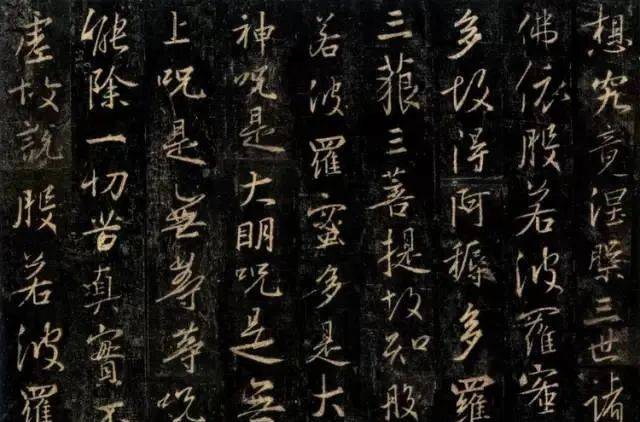 想究竟涅槃三世諸
佛依般若波羅蜜
多故得阿耨多羅
三藐三菩提故知般
若波羅蜜多是大
神咒是大明咒是無
上咒是無等等咒
能除一切苦真實不
虛故說般若波羅